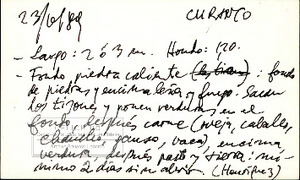 23/6/89 CURANTO
- Largo: 2 ó 3 m. Hondo: 1.20.
- Fondo, piedra caliente : fondo
de piedras y encima leña y fuego. Sacan
los tizones y ponen verduras en el
fondo, después carne (oveja, caballo,
chancho, ganso, vaca), encima,
verdura, después pasto y tierra: mí-
nimo 2 días sin abrir. (Henríquez)